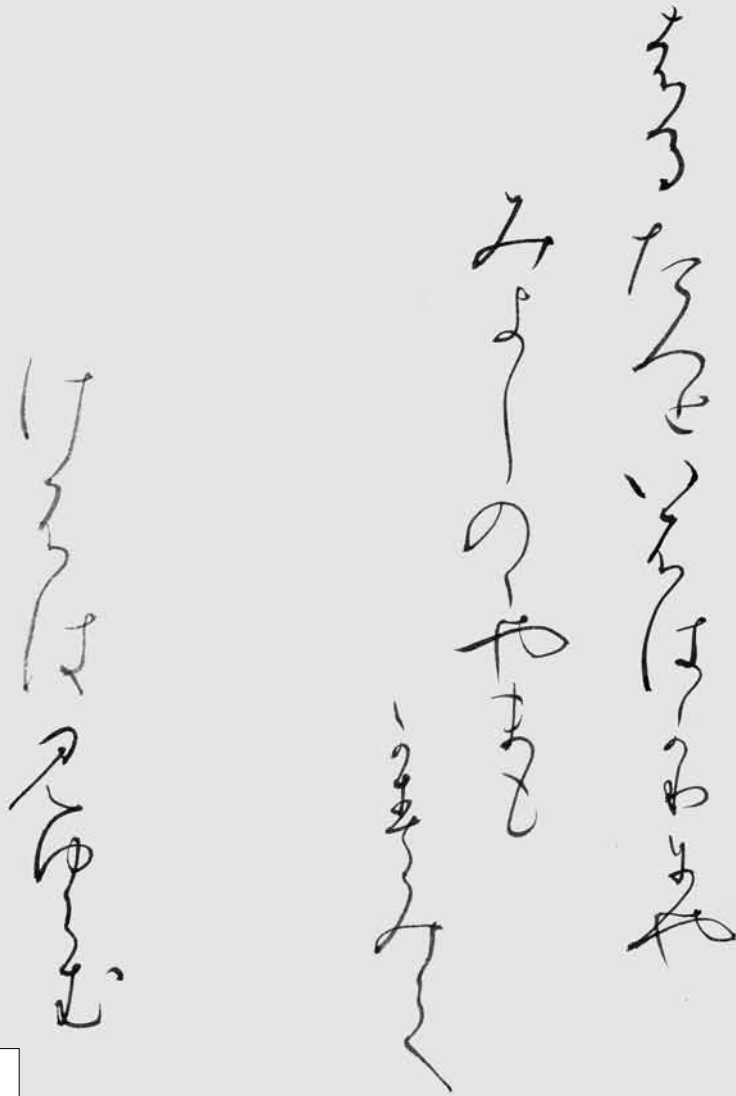 はるたつといふはかりにや
みよしのゝやまも
かすみて
けさは見ゆらむ